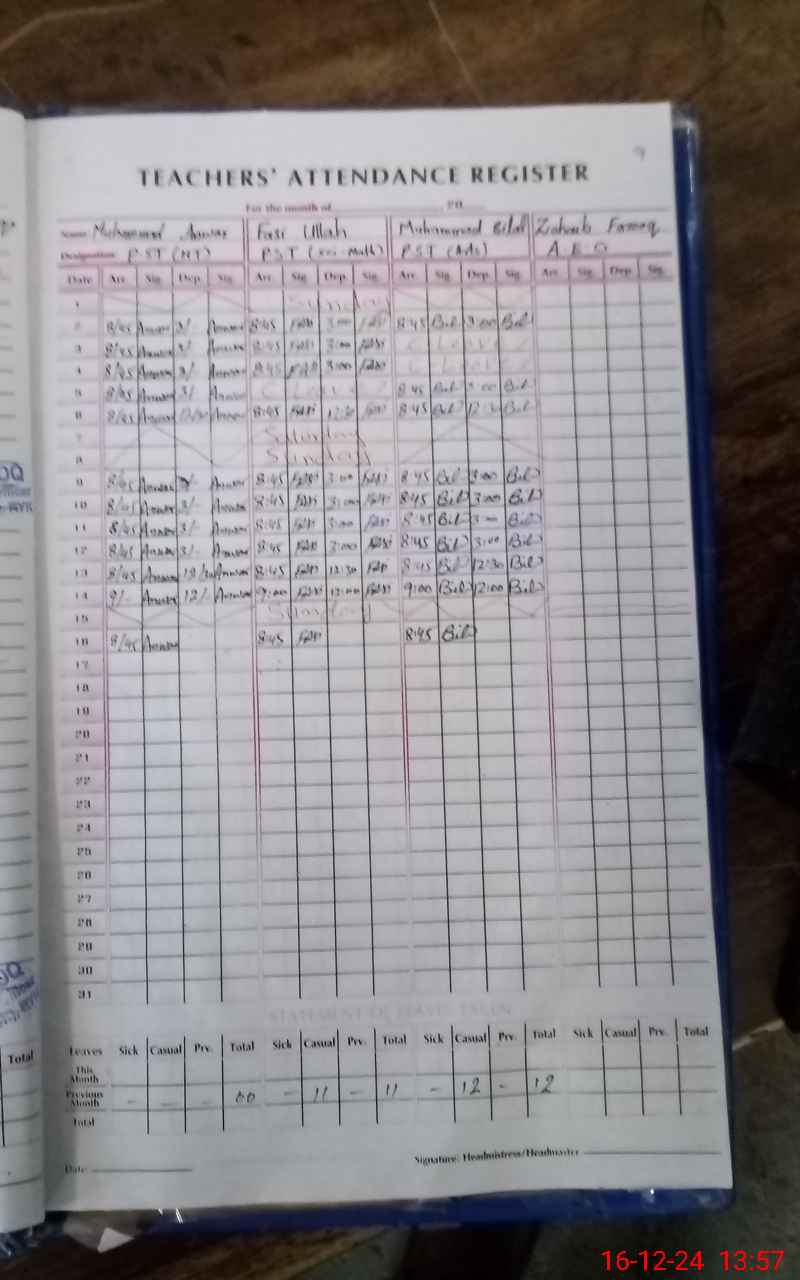 TEACHERS' ATTENDANCE REGISTER
For the month of 20
Name Muhammad Anwar Fasi Ullah Muhammad Bilal Zohaib Farooq
Designation PST (NT) PST (Sci-Math) PST (Ads) A.E.O
Date Arr. Sig. Dep. Sig. Arr. Sig. Dep. Sig. Arr. Sig. Dep. Sig. Arr. Sig. Dep. Sig.
1 Sunday
2 8/45 Anwar 3/- Anwar 8:45 3:00 8:45 Bil 3:00 Bil
3 8/45 Anwar 3/ Anwar 8:45 3:00 C Leave 2
4 8/45 Anwar 3/ Anwar 8:45 3:00 C Leave 2
5 8/45 Anwar 3/ Anwar C Leave 2 8:45 Bil 3:00 Bil
6 8/45 Anwar 12/30 Anwar 8:45 12:30 8:45 Bil 12:30 Bil
7 Saturday
8 Sunday
9 8/45 Anwar 3/- Anwar 8:45 3:00 8:45 Bil 3:00 Bil
10 8/45 Anwar 3/- Anwar 8:45 3:00 8:45 Bil 3:00 Bil
11 8/45 Anwar 3/- Anwar 8:45 3:00 8:45 Bil 3 Bil
12 8/45 Anwar 3/- Anwar 8:45 3:00 8:45 Bil 3:00 Bil
13 8/45 Anwar 12/30 Anwar 8:45 12:30 8:45 Bil 12:30 Bil
14 9/- Anwar 12/- Anwar 9:00 12:00 9:00 Bil 12:00 Bil
15 Sunday
16 8/45 Anwar 8:45 8:45 Bil
17
18
19
20
21
22
23
24
25
26
27
28
29
30
31
STATEMENT OF LEAVES TAKEN
Leaves Sick Casual Prv. Total Sick Casual Prv. Total Sick Casual Prv. Total Sick Casual Prv. Total
This Month
Previous Month - - - 00 - 11 - 11 - 12 - 12
Total
Date: Signature: Headmistress/Headmaster
Total
16-12-24 13:57